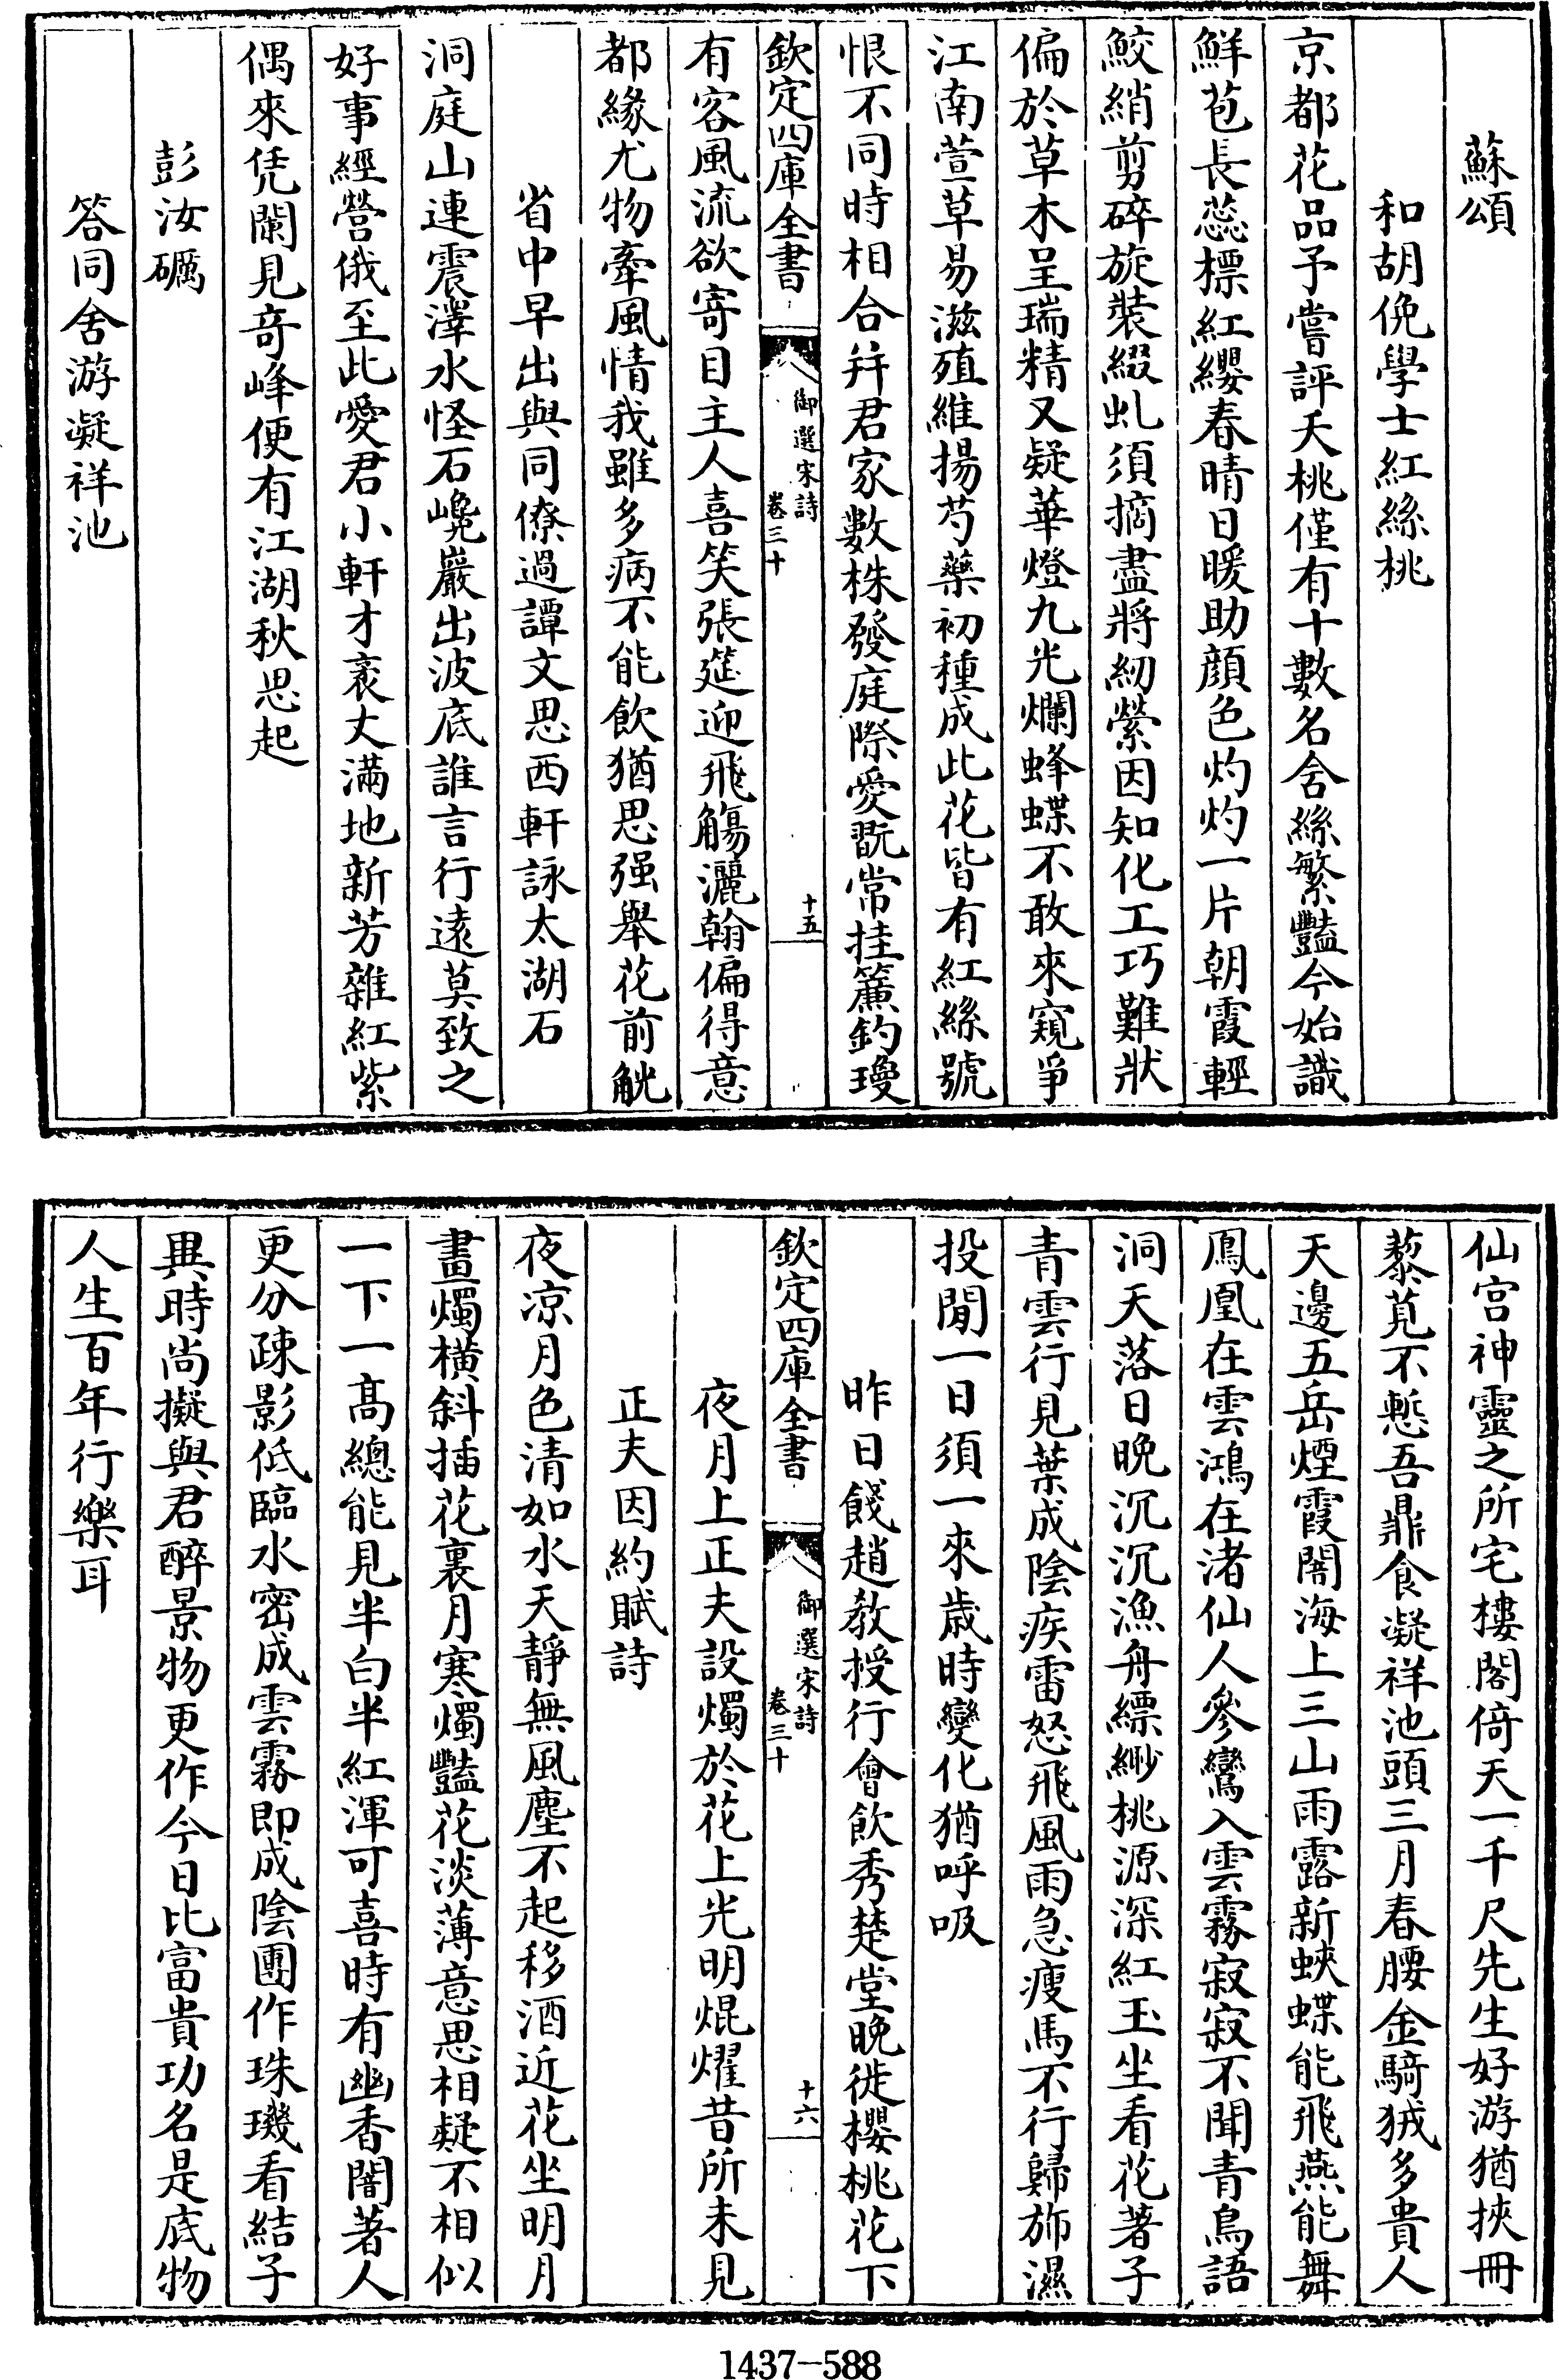 蘇頌
和胡俛學士紅絲桃
京都花品予嘗評夭桃僅有十數名舍絲繁豔今始識
鮮苞長蕊標紅纓春晴日暖助顔色灼灼一片朝霞輕
鮫綃剪碎旋裝綴虬須摘盡將紉縈因知化工巧難狀
偏於草木呈瑞精又疑華燈九光爛蜂蝶不敢來窺爭
江南萱草易滋殖維揚芍藥初種成此花皆有紅絲號
恨不同時相合幷君家數株發庭際愛翫常挂簾鈎瓊
欽定四庫全書
御選宋詩
卷三十
十五
有客風流欲寄目主人喜笑張筵迎飛觴灑翰偏得意
都緣尤物牽風情我雖多病不能飲猶思强舉花前觥
省中早出與同僚過譚文思西軒詠太湖石
洞庭山連震澤水怪石巉巖出波底誰言行遠莫致之
好事經營俄至此愛君小軒才袤丈滿地新芳雜紅紫
偶來凭闌見奇峰便有江湖秋思起
彭汝礪
答同舍游凝祥池
仙宫神靈之所宅樓閣倚天一千尺先生好游猶挾冊
藜莧不慙吾鼎食凝祥池頭三月春腰金騎狨多貴人
天邊五岳煙霞闇海上三山雨露新蛺蝶能飛燕能舞
鳳凰在雲鴻在渚仙人參鸞入雲霧寂寂不聞青鳥語
洞天落日晚沉沉漁舟縹緲桃源深紅玉坐看花著子
青雲行見葉成陰疾雷怒飛風雨急瘦馬不行歸斾濕
投閒一日須一來歲時變化猶呼吸
昨日餞趙教授行會飲秀楚堂晚徙櫻桃花下
欽定四庫全書
御選宋詩
卷三十
十六
夜月上正夫設燭於花上光明焜燿昔所未見
正夫因約賦詩
夜凉月色清如水天靜無風塵不起移酒近花坐明月
畫燭橫斜插花裏月寒燭豔花淡薄意思相疑不相似
一下一高總能見半白半紅渾可喜時有幽香闇著人
更分疎影低臨水密成雲霧即成陰團作珠璣看結子
異時尚擬與君醉景物更作今日比富貴功名是底物
人生百年行樂耳
1437-588